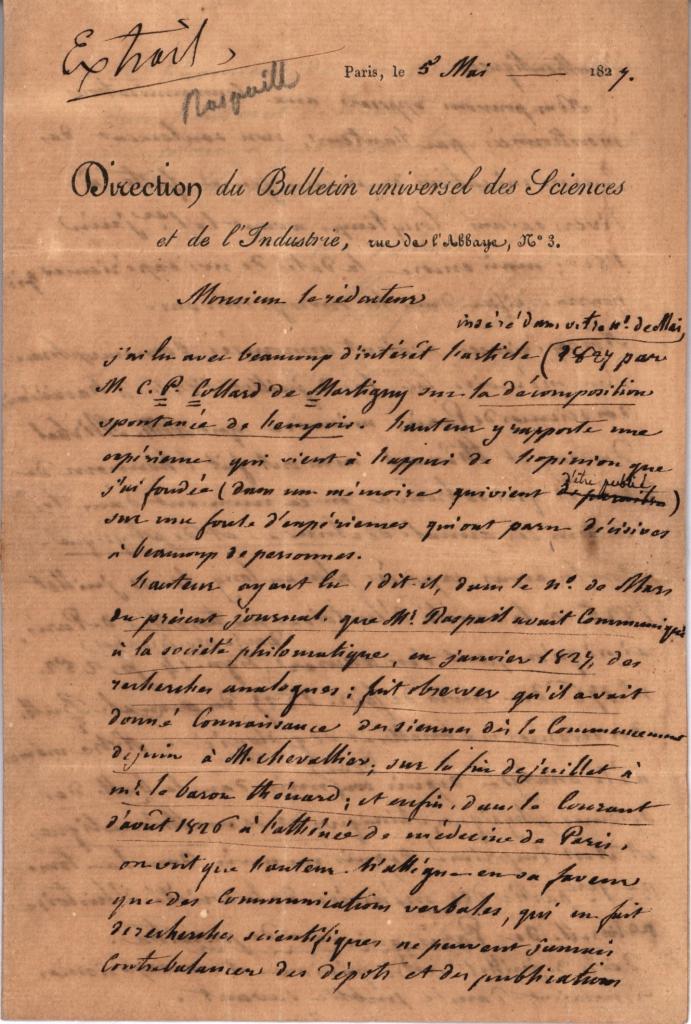 Extrait,
Raspaill
Paris, le 5 Mai 1827.
Direction du Bulletin universel des Sciences
et de l'Industrie, rue de l'Abbaye, N° 3.
Monsieur le rédacteur
inséré dans votre n°. de Mai,
j'ai lu avec beaucoup d'intérêt l'article (1827 par
M. C. P. Collard de Martigny sur la décomposition
spontanée de l'empois. l'auteur y rapporte une
expérience qui vient à l'appui de l'opinion que
d'être publié
j'ai fondée (dans un mémoire qui vient de paraitre)
sur une foule d'expériences qui ont paru décisives
à beaucoup de personnes.
l'auteur ayant lu, dit-il, dans le n°. de Mars
du présent journal que Mr. Raspail avait Communiqué
à la société philomatique, en janvier 1827, des
recherches analogues; fait observer qu'il avait
donné Connaissance des siennes dès le Commencement
de juin à M. chevallier; sur la fin de juillet à
mr. le baron thénard; et enfin, dans le Courant
d'août 1826 à l'athénée de médecine de Paris.
on voit que l'auteur n'allègue en sa faveur
que des Communications verbales, qui en fait
de recherches scientifiques ne peuvent jamais
Contrebalancer des dépots et des publications